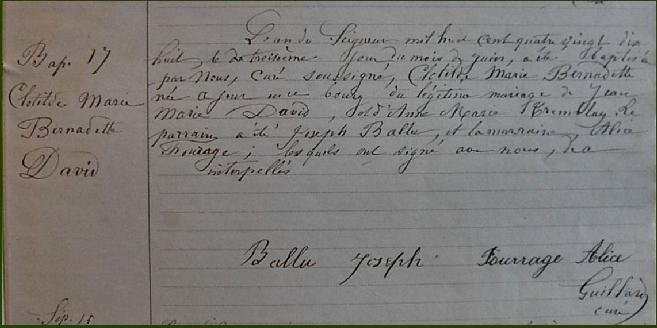 Bap. 17
Clotilde Marie
Bernadette
David
L'an du Seigneur mil huit cent quatre vingt dix
huit, le treizième jour du mois de juin, a été baptisée
par nous, curé soussigné, Clotilde Marie Bernadette
née a jour au bourg du légitime mariage de Jean
Marie David, et d'Anne Marie Tremblay. Le
parrain a été Joseph Ballu, et la marraine, Alice
Fourage ; lesquels ont signé avec nous, de a
interpellés
Ballu Joseph Fourrage Alice
Guillard
curé
Sép. 15